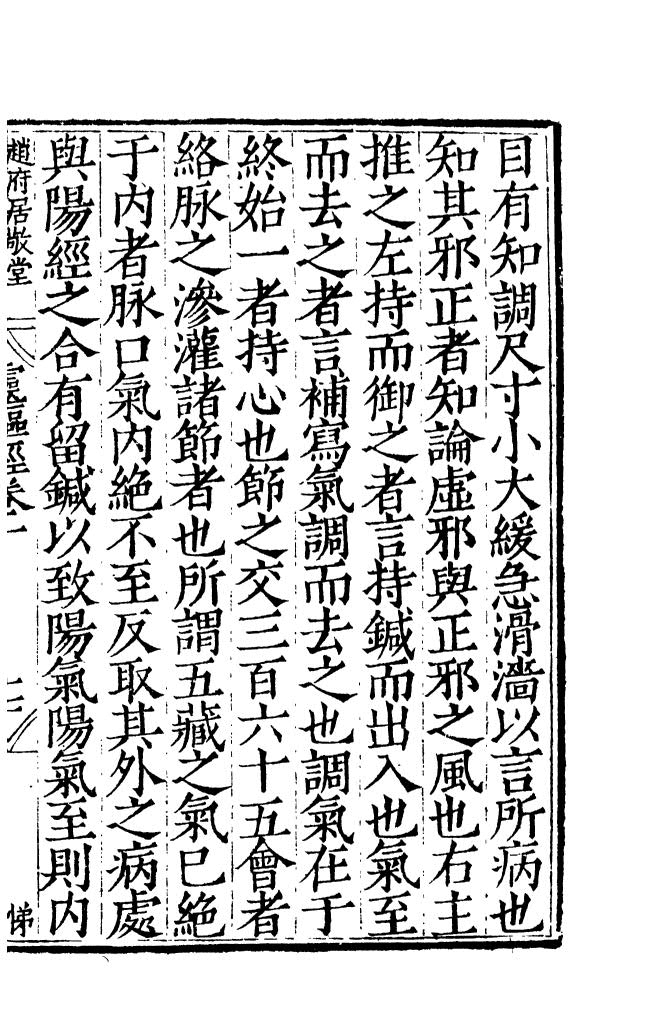 目有知調尺寸小大緩急滑濇以言所病也
知其邪正者知論虛邪與正邪之風也右主
推之左持而御之者言持鍼而出入也氣至
而去之者言補寫氣調而去之也調氣在于
終始一者持心也節之交三百六十五會者
絡脉之滲灌諸節者也所謂五藏之氣已絕
于内者脉口氣内絕不至反取其外之病處
與陽經之合有留鍼以致陽氣陽氣至則内
趙府居敬堂 靈樞經卷一 二 悌